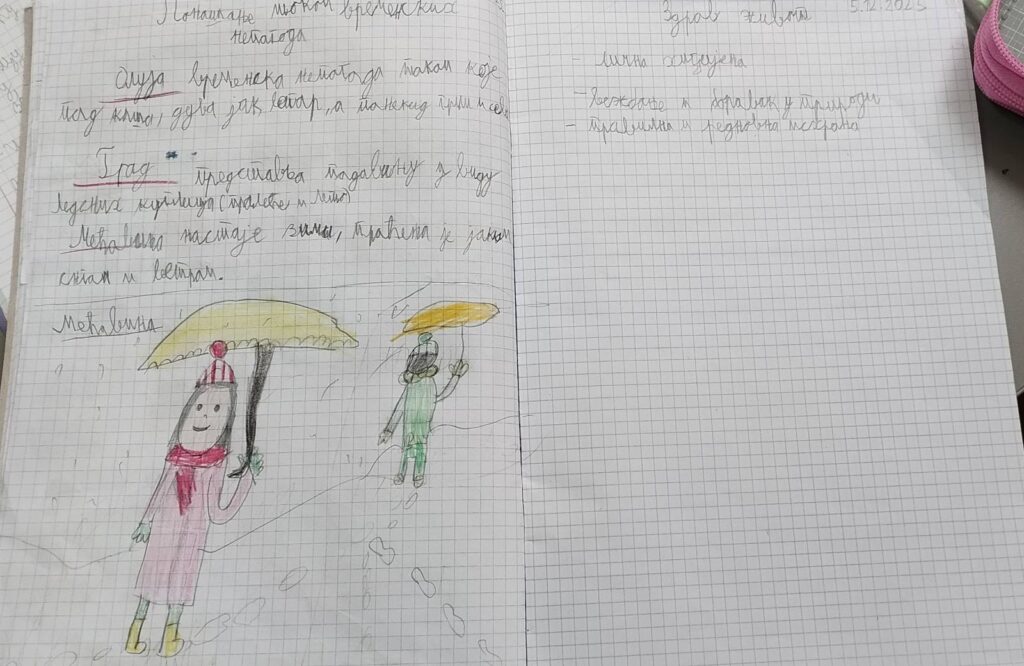 Понашање током временских
непогода
Олуја временска непогода током које
пад киша, дува јак ветар, а понекад грми и сева
Град представља падавину у виду
ледених куглица (пролеће и лето)
Мећавина настаје зими, праћена је јаким
снегом и ветром.
Мећавина
Здрав живот 5.12.2023
- лична хигијена
- вежбање и боравак у природи
- правилна и редновна исхрана